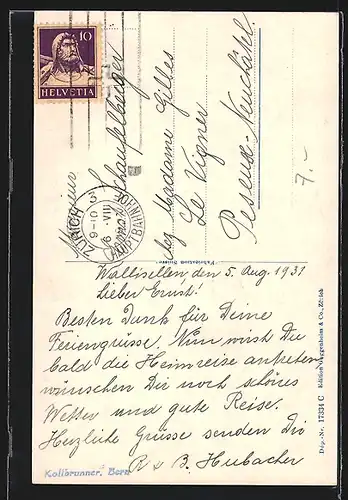 10
HELVETIA
ZÜRICH
5
9-10
6. VIII
HAUPTBAHNHOF
Monsieur
Schaufelberger
bez Madame Gilles
Le Vigner
Peseux-Neuchâtel
7.-
Wallisellen den 5. Aug. 1931
Lieber Ernst!
Besten Dank für Deine
Feriengrüsse. Nun wirst Du
bald die Heimreise antreten
wünschen Dir noch schönes
Wetter und gute Reise.
Herzliche Grüsse senden Dir
R & B. Hubacher
Kollbrunner, Bern
Dép.-Nr. 17334 C Edition Guggenheim & Co, Zürich